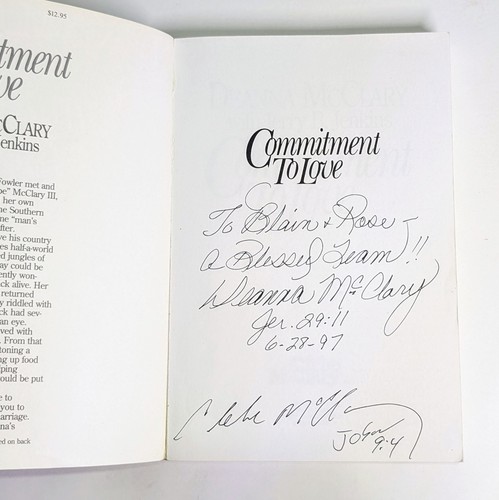 $12.95
tment
ve
CLARY
enkins
Fowler met and
be" McClary III,
her own
he Southern
ne "man's
fter.
ve his country
es half-a-world
d jungles of
ay could be
ently won-
ck alive. Her
returned
y riddled with
ck had sev-
an eye.
ved with
From that
toning a
ng up food
lping
ould be put
e to
you to
arriage.
na's
ed on back
Commitment
To Love
To Blain & Rose -
a Blessed Team!!
Deanna McClary
Jer. 29:11
6-28-97
Clebe McClary
John
9:4